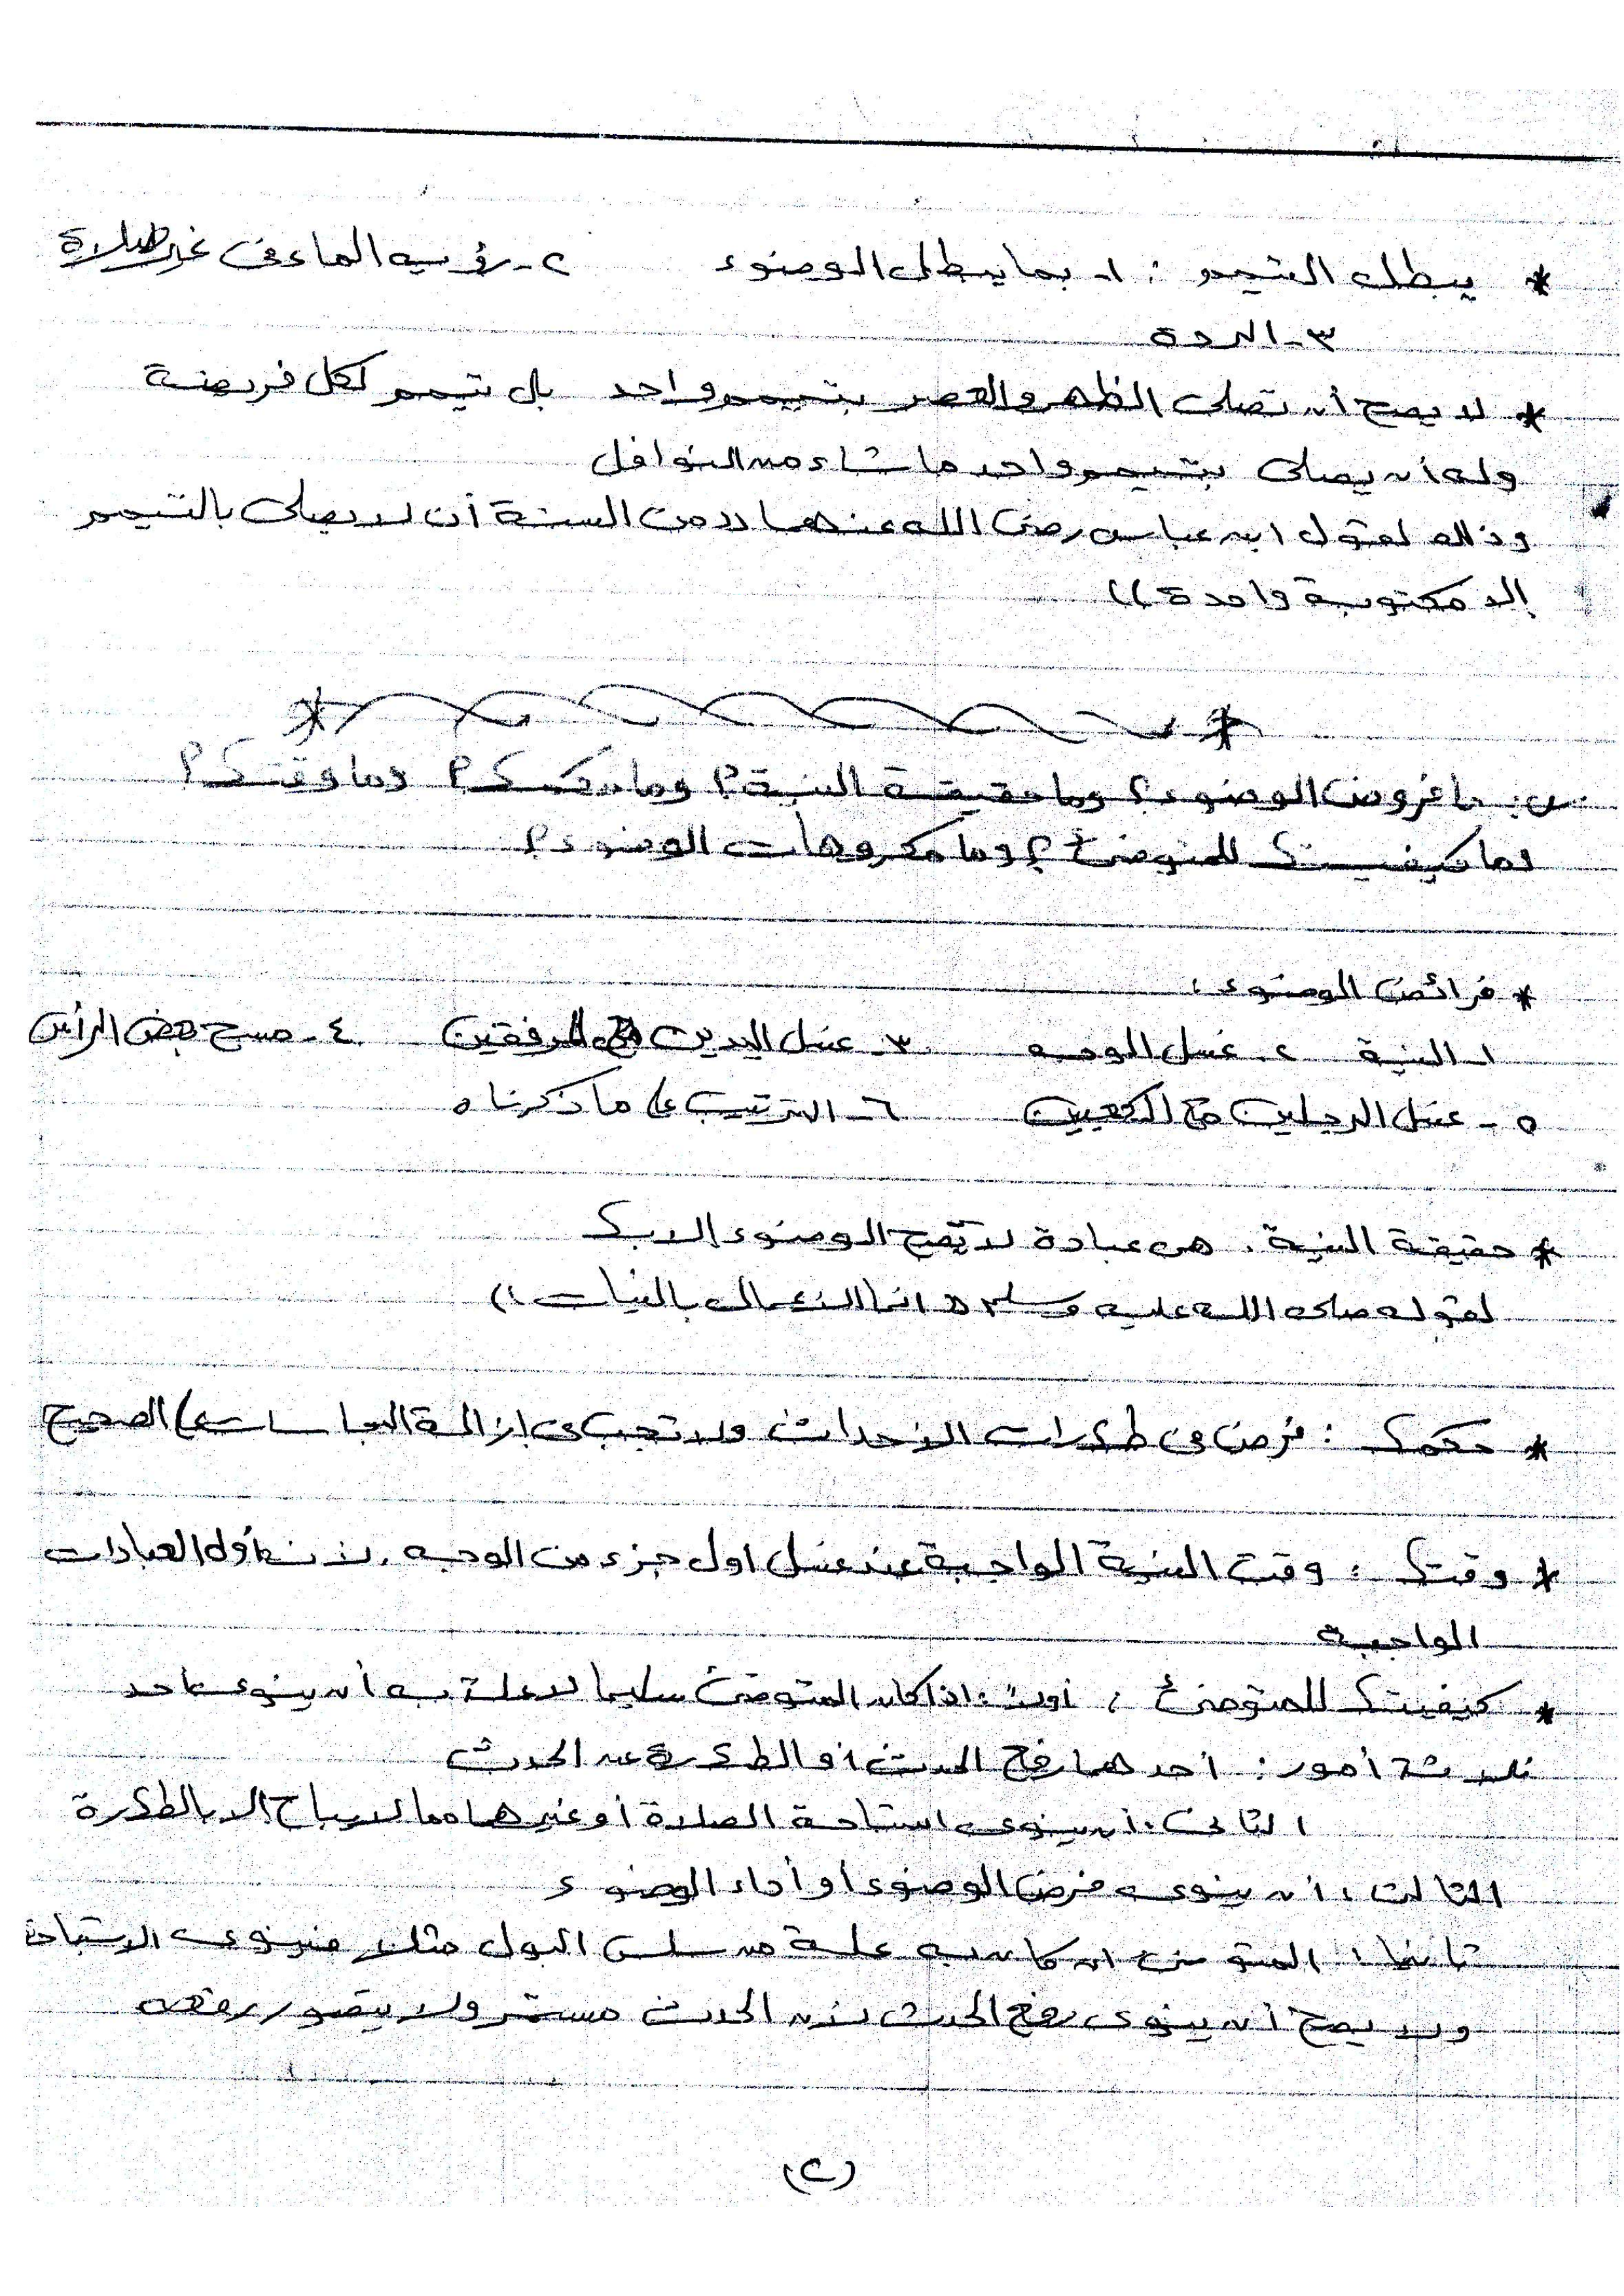 * يبطل التيمم : ١- بما يبطل الوضوء ٢- رؤية الماء فى غير صلاة
٣- الردة
* لا يصح أن تصلى الظهر والعصر بتيمم واحد بل تيمم لكل فريضة
وله أن يصلى بتيمم واحد ما شاء من النوافل
وذلك لقول ابن عباس رضى الله عنهما ((من السنة أن لا يصلى بالتيمم
إلا مكتوبة واحدة))
س: ما فروض الوضوء؟ وما حقيقة النية؟ وما حكمها؟ وما وقتها؟
وما كيفيتها للمتوضئ؟ وما مكروهات الوضوء؟
* فرائض الوضوء :
١- النية ٢- غسل الوجه ٣- غسل اليدين مع المرفقين ٤- مسح بعض الرأس
٥- غسل الرجلين مع الكعبين ٦- الترتيب على ما ذكرناه
* حقيقة النية . هى عبادة لا تصح الوضوء إلا بها
لقوله صلى الله عليه وسلم (( انما الاعمال بالنيات ))
* حكمها : فرض فى طهارات الأحداث ولا تجب فى إزالة النجاسات على الصحيح
* وقتها : وقت النية الواجبة عند غسل أول جزء من الوجه . لأنه أول العبادات
الواجبة
* كيفيتها للمتوضئ : أولاً : إذا كان المتوضئ سليما لا علة به أن ينوى بأحد
ثلاثة أمور : أحدهما رفع الحدث أو الطهارة عن الحدث
الثانى . أن ينوى استباحة الصلاة أو غيرهما مما لا يباح إلا بالطهارة
الثالث : أن ينوى فرض الوضوء أو أداء الوضوء
ثانيا : المتوضئ ان كان به علة من سلس البول مثلا فينوى الاستباحة
ولا يصح أن ينوى رفع الحدث لأن الحدث مستمر ولا يتصور رفعه
(٢)